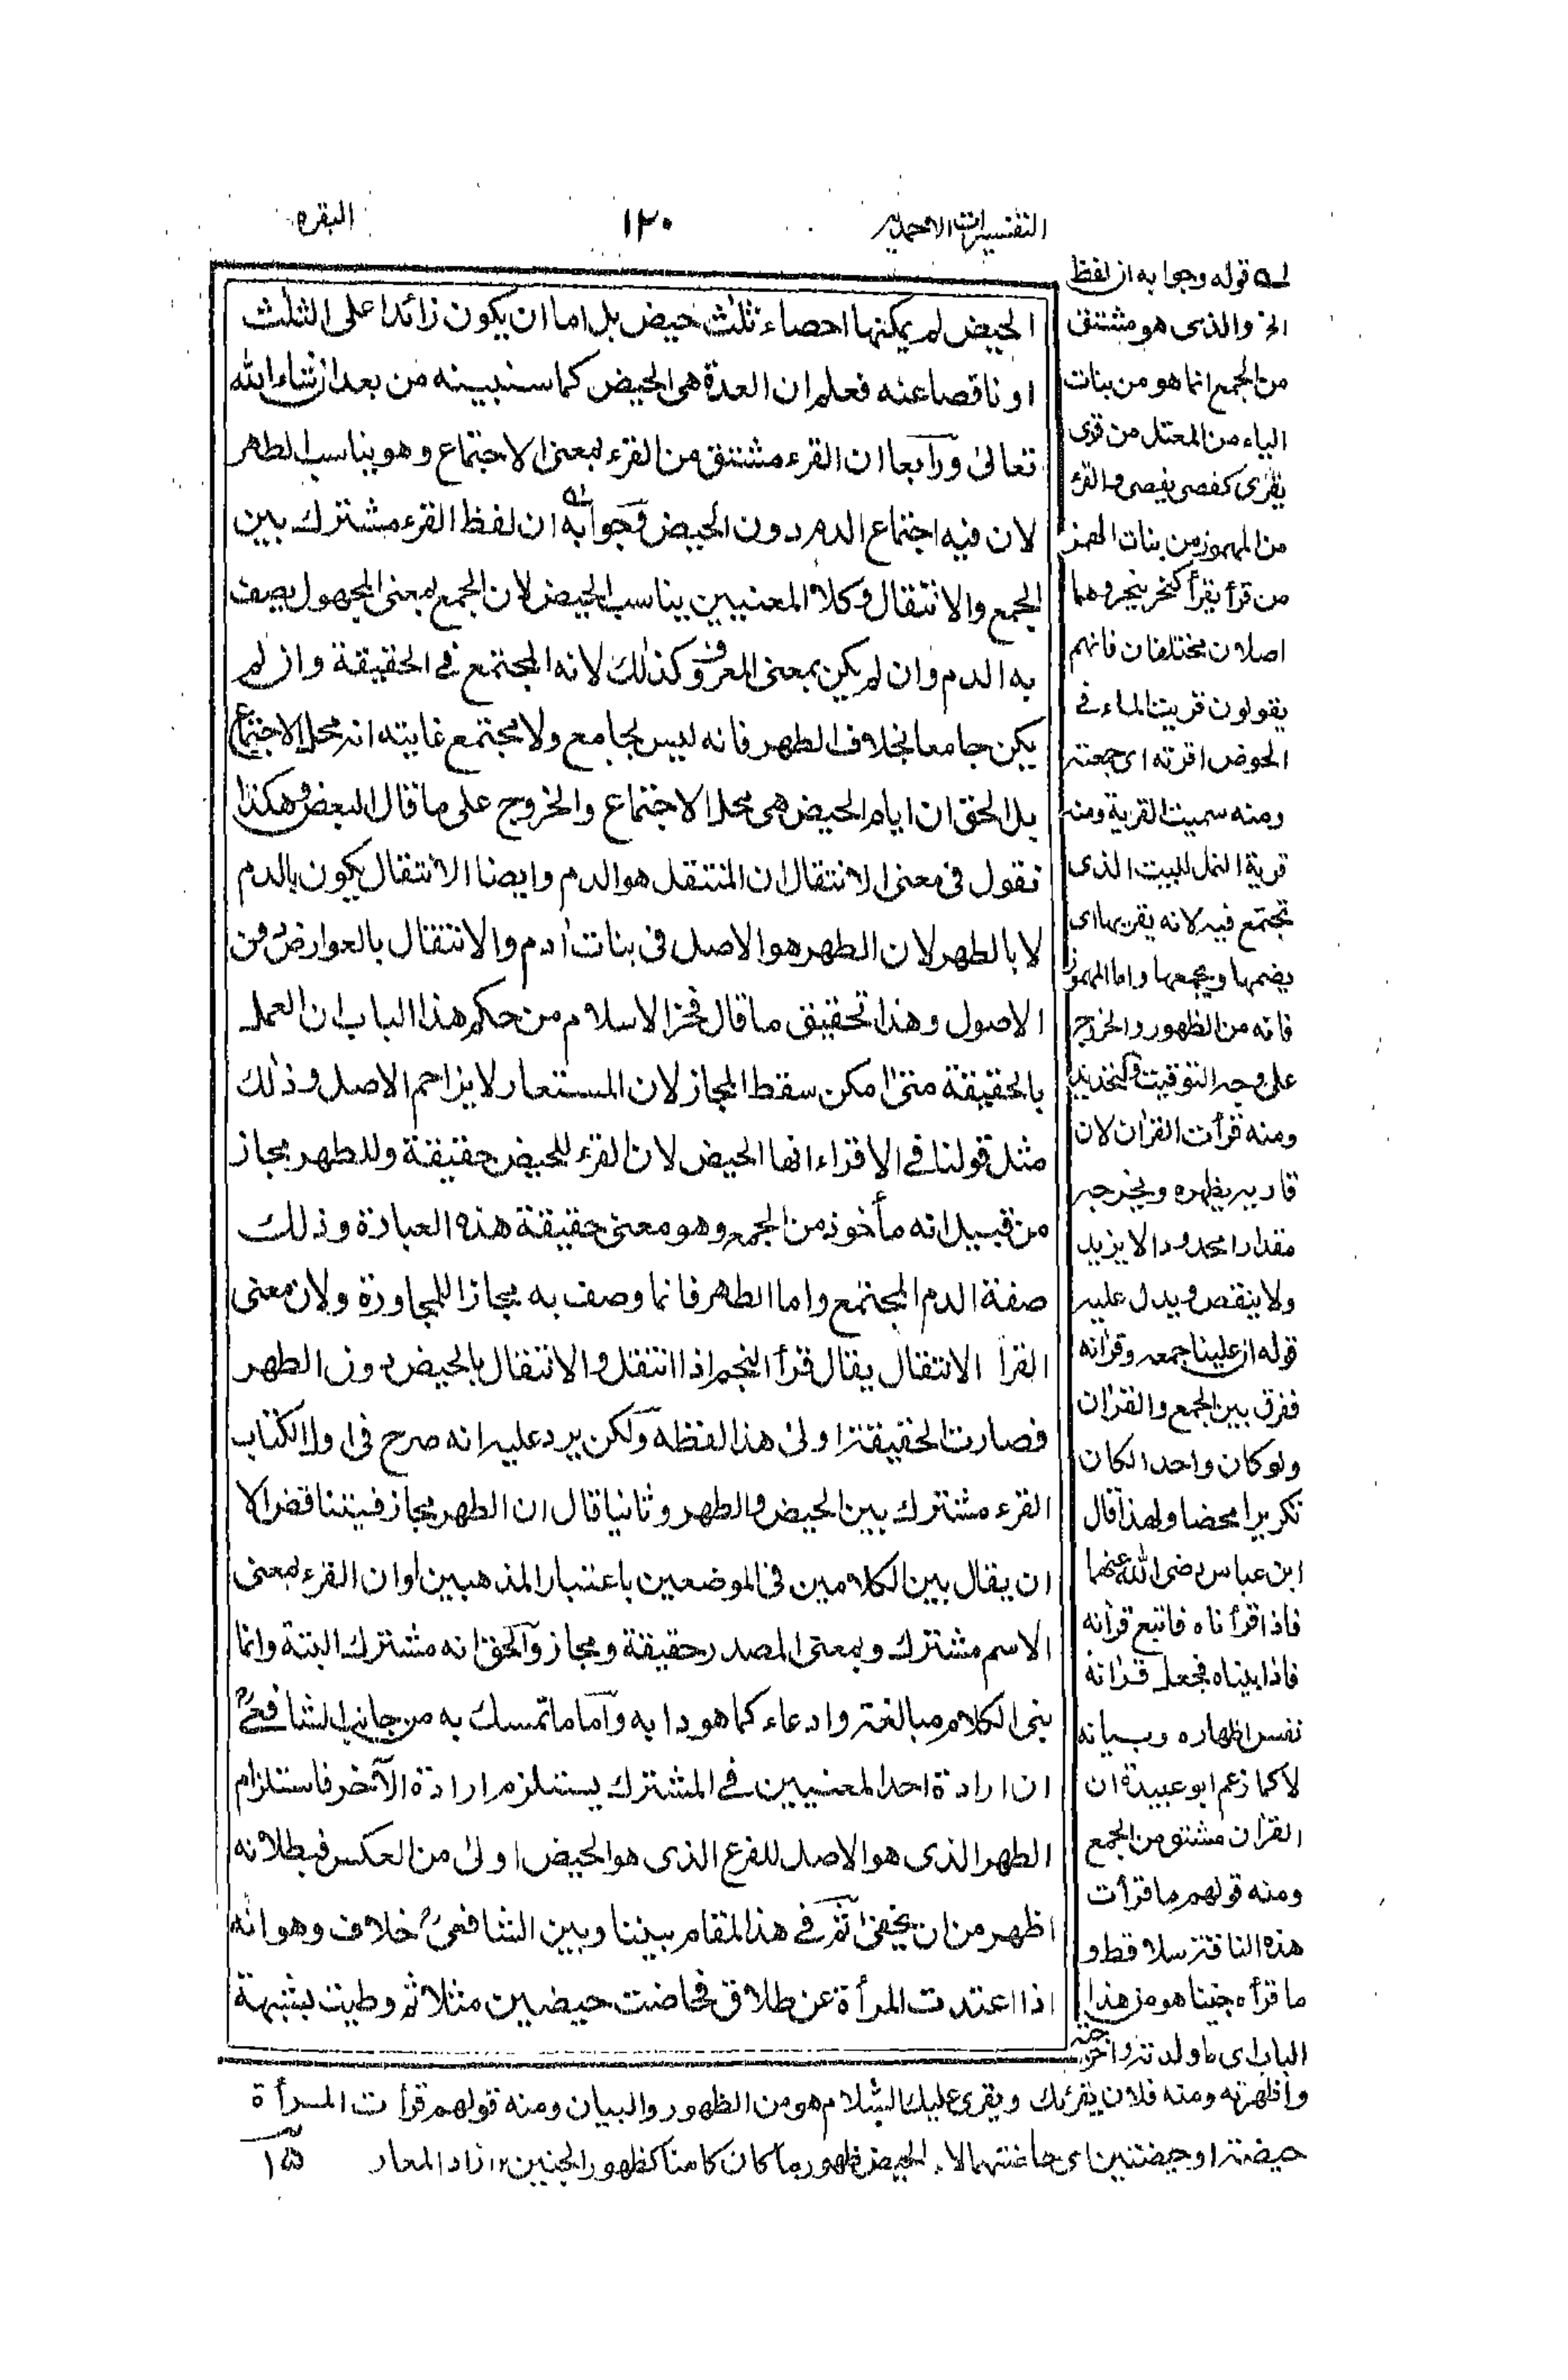 التفسيرات الاحمديه
١٢٠
البقره
الحيض لم يمكنها احصاء ثلث حيض بل اما ان يكون زائدا على الثلث
او ناقصا عنه فعلم ان العدة هى الحيض كما سنبينه من بعد ان شاء الله
تعالى ورابعا ان القرء مشتق من القرء بمعنى الاجتماع وهو يناسب الطهر
لان فيه اجتماع الدم دون الحيض وجوابه له ان لفظ القرء مشترك بين
الجمع والانتقال وكلا المعنيين يناسب الحيض لان الجمع بمعنى المجهول يصف
به الدم وان لم يكن بمعنى المعروف وكذلك لانه المجتمع فى الحقيقة وان لم
يكن جامعا بخلاف الطهر فانه ليس بجامع ولا مجتمع غايته انه محل الاجتماع
بل الحق ان ايام الحيض هى محل الاجتماع والخروج على ما قال البعض وهكذا
نقول فى معنى الانتقال ان المنتقل هو الدم وايضا الانتقال يكون بالدم
لا بالطهر لان الطهر هو الاصل فى بنات أدم والانتقال بالعوارض دون
الاصول وهذا تحقيق ما قال فخر الاسلام من حكم هذا الباب ان العمل
بالحقيقة متى امكن سقط المجاز لان المستعار لا يزاحم الاصل وذلك
مثل قولنا فى الاقراء انها الحيض لان القرء للحيض حقيقة وللطهر مجاز
من قبيل انه مأخوذ من الجمع وهو معنى حقيقة هذه العبارة وذلك
صفة الدم المجتمع واما الطهر فانما وصف به مجازا للمجاورة ولان معنى
القرأ الانتقال يقال قرأ النجم اذا انتقل والانتقال بالحيض دون الطهر
فصارت الحقيقة اولى هذا لفظه ولكن يرد عليه انه صرح فى اول الكتاب
القرء مشترك بين الحيض والطهر وثانيا قال ان الطهر مجاز فيتناقض الا
ان يقال بين الكلامين فى الموضعين باعتبار المذهبين او ان القرء بمعنى
الاسم مشترك وبمعنى المصدر حقيقة ومجاز والحق انه مشترك البتة وانما
بنى الكلام مبالغة وادعاء كما هو دابه واما ما تمسك به من جانب الشافعىؒ
ان ارادة احد المعنيين فى المشترك يستلزم ارادة الآخر فاستلزام
الطهر الذى هو الاصل للفرع الذى هو الحيض اولى من العكس فبطلانه
اظهر من ان يخفى ثم فى هذا المقام بيننا وبين الشافعىؒ خلاف وهو انه
اذا اعتدت المرأة عن طلاق فحاضت حيضين مثلا ثم وطيت بشبهة
له قوله وجوابه ان لفظ
الخ والذى هو مشتق
من الجمع انما هو من بنات
الياء من المعتل من قرى
يقرى كفصى يفصى والقرء
من المهموز من بنات الهمز
من قرأ يقرأ كنحر ينحر وهما
اصلان مختلفان فانهم
يقولون قريت الماء فى
الحوض اقرته اى جمعته
ومنه سميت القرية ومنه
قرية النمل للبيت الذى
تجتمع فيه لانه يقريها اى
يضمها ويجمعها واما المهموز
فانه من الظهور والخروج
على وجه التوقيت والتحديد
ومنه قرأت القران لان
قاريه يظهره ويخرجه
مقدارا محدودا لا يزيد
ولا ينقص ويدل عليه
قوله ان علينا جمعه وقرانه
ففرق بين الجمع والقران
ولو كان واحدا لكان
تكريرا محضا ولهذا قال
ابن عباس رضى الله عنهما
فاذا قرأناه فاتبع قرانه
فاذا بيناه فجعل قرانه
نفس اظهاره وبيانه
لا كما زعم ابو عبيدة ان
القران مشتق من الجمع
ومنه قولهم ما قرأت
هذه الناقة سلا قط و
ما قرأه جنينا هو من هذا
الباب اى ما ولدته واخرجته
واظهرته ومنه فلان يقرئك ويقرئ عليك السلام هو من الظهور والبيان ومنه قولهم قرأت المرأة
حيضة او حيضتين اى حاضتهما لا الحيض ظهور ما كان كامنا كظهور الجنين ١٢ زاد المعاد